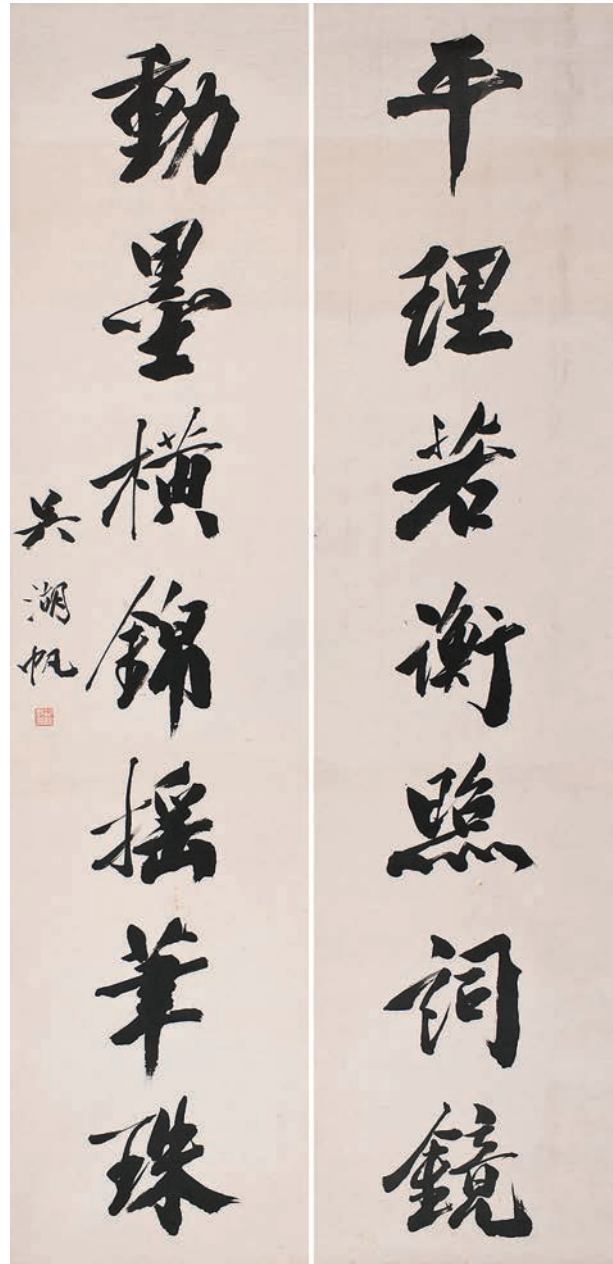 平理若衡照詞鏡
動墨橫錦摇筆珠
吳湖帆